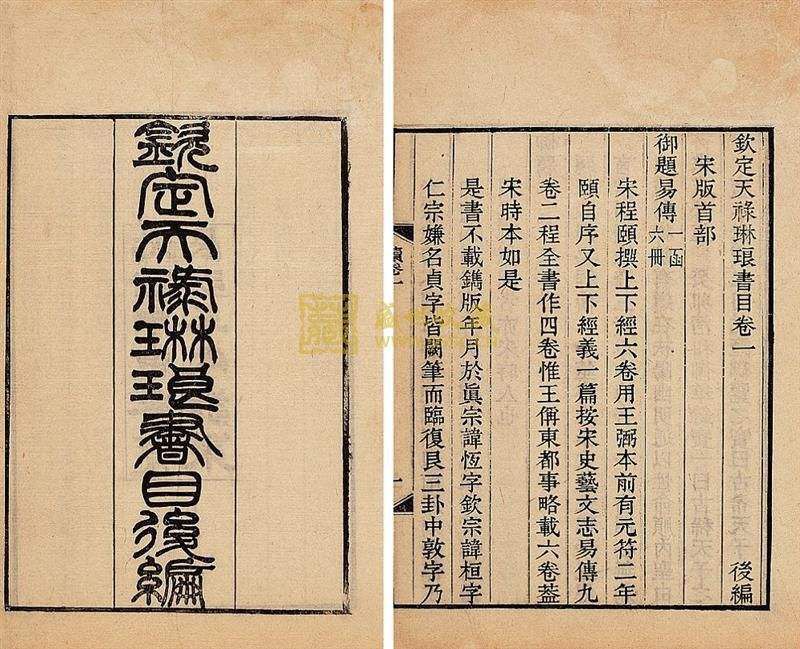 欽定天祿琳琅書目後編
欽定天祿琳琅書目卷一 後編
宋版首部
御題易傳一函六冊
宋程頤撰上下經六卷用王弼本前有元符二年
頤自序又上下經義一篇按宋史藝文志易傳九
卷二程全書作四卷惟王偁東都事略載六卷葢
宋時本如是
是書不載鐫版年月於眞宗諱恆字欽宗諱桓字
仁宗嫌名貞字皆闕筆而臨復艮三卦中敦字乃
續卷一
一